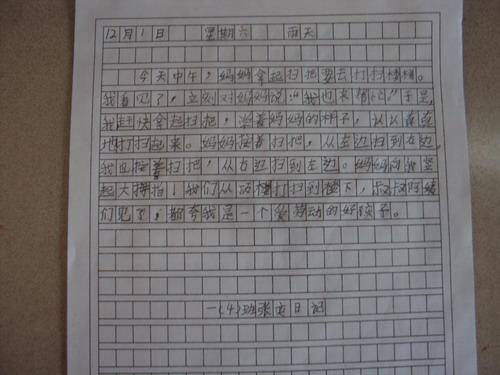 12月1日 星期六 雨天
今天中午，妈妈拿起扫把要去打扫楼梯。
我看见了，立刻对妈妈说：“我也来帮忙。”于是，
我赶快拿起扫把，学着妈妈的样子，认认真真
地打扫起来。妈妈按着扫把，从左边扫到右边，
我也按着扫把，从右边扫到左边。妈妈向我竖
起大拇指！我们从顶楼打扫到楼下，叔叔阿姨
们见了，都夸我是一个爱劳动的好孩子。
一(4)班张 日记